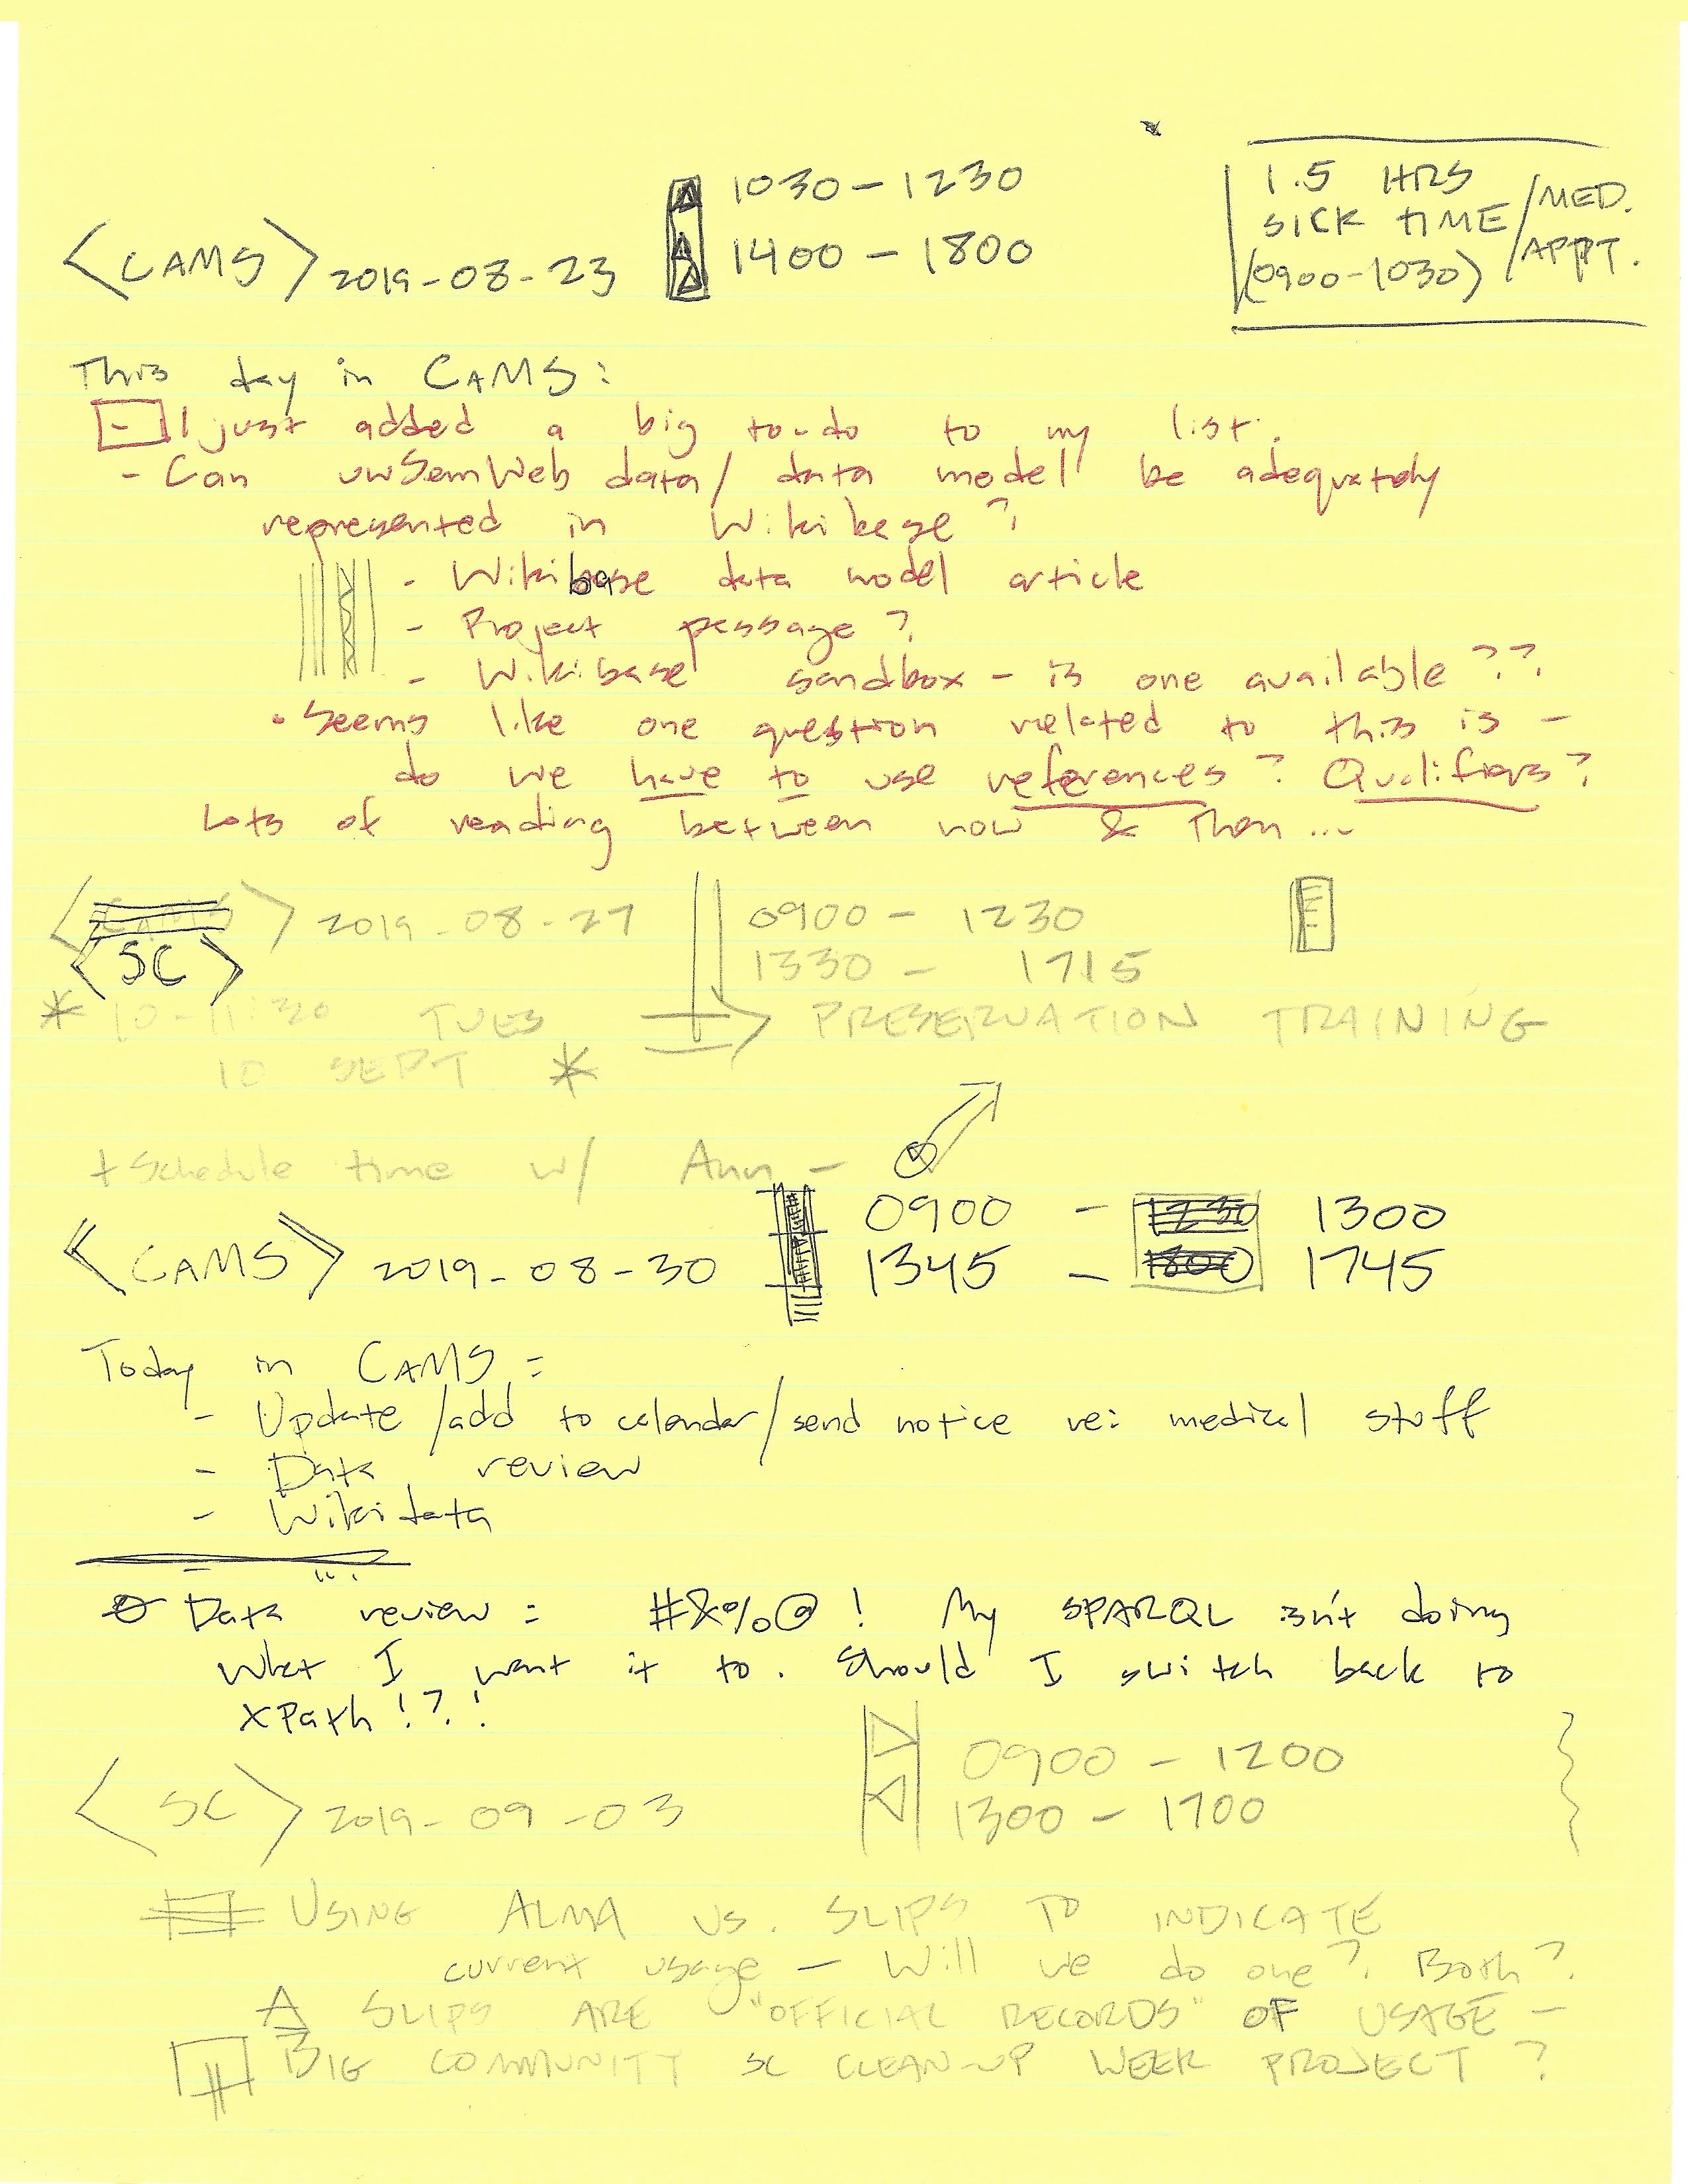 1030 – 1230
1.5 HRS
SICK TIME / MED.
(0900-1030) / APPT.
1400 – 1800
<CAMS> 2019-08-23
This day in CAMS:
- I just added a big to-do to my list.
- Can uwSemWeb data / data model be adequately
represented in Wikibase?
- Wikibase data model article
- Project passage?
- Wikibase sandbox - is one available??
• Seems like one question related to this is -
do we have to use references? Qualifiers?
Lots of reading between now & then...
<CAMS> 2019-08-27 0900 - 1230
<SC> 1330 - 1715
* 10-11:30 TUES PRESERVATION TRAINING
10 SEPT *
+ Schedule time w/ Ann -
0900 - 1230 1300
<CAMS> 2019-08-30 1345 - 1800 1745
Today in CAMS:
- Update/add to calendar/send notice re: medical stuff
- Data review
- Wikidata
Data review: #&%@! My SPARQL isn't doing
what I want it to. Should I switch back to
XPath!?!
0900 - 1200
<SC> 2019-09-03 1300 - 1700
USING ALMA VS. SLIPS TO INDICATE
current usage - Will we do one? Both?
SLIPS ARE "OFFICIAL RECORDS" OF USAGE -
BIG COMMUNITY SC CLEAN-UP WEEK PROJECT?